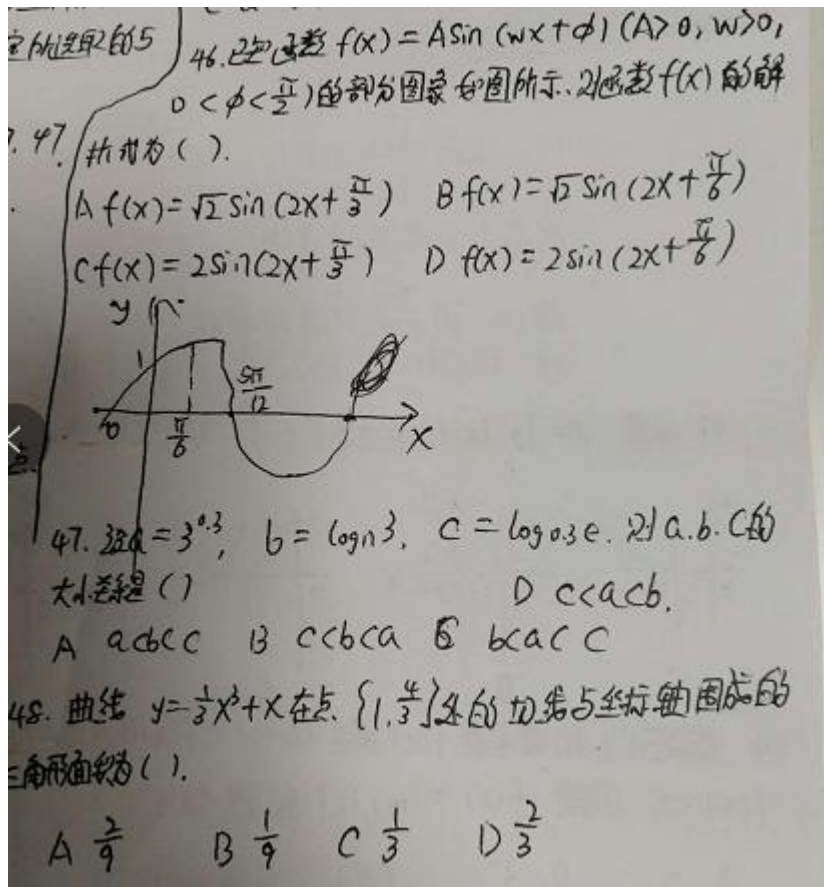 定所选取的5
46.已知函数 f(x) = Asin (wx+φ) (A>0, w>0,
0<φ<π/2)的部分图象如图所示、则函数f(x)的解
47.
析式为( ).
A f(x)=√2 sin (2x+π/3) B f(x)=√2 sin (2x+π/6)
C f(x)=2sin(2x+π/3) D f(x)=2sin(2x+π/6)
y
1
5π/12
0 π/6 x
47. 设a=3^0.3, b=logπ3, c=log0.3e. 则a.b.c的
大小关系是( ) D c<a<b.
A a<b<c B c<b<a C b<a<c
48. 曲线 y=1/3x³+x在点{1,4/3}处的切线与坐标轴围成的
三角形面积为( ).
A 2/9 B 1/9 C 1/3 D 2/3